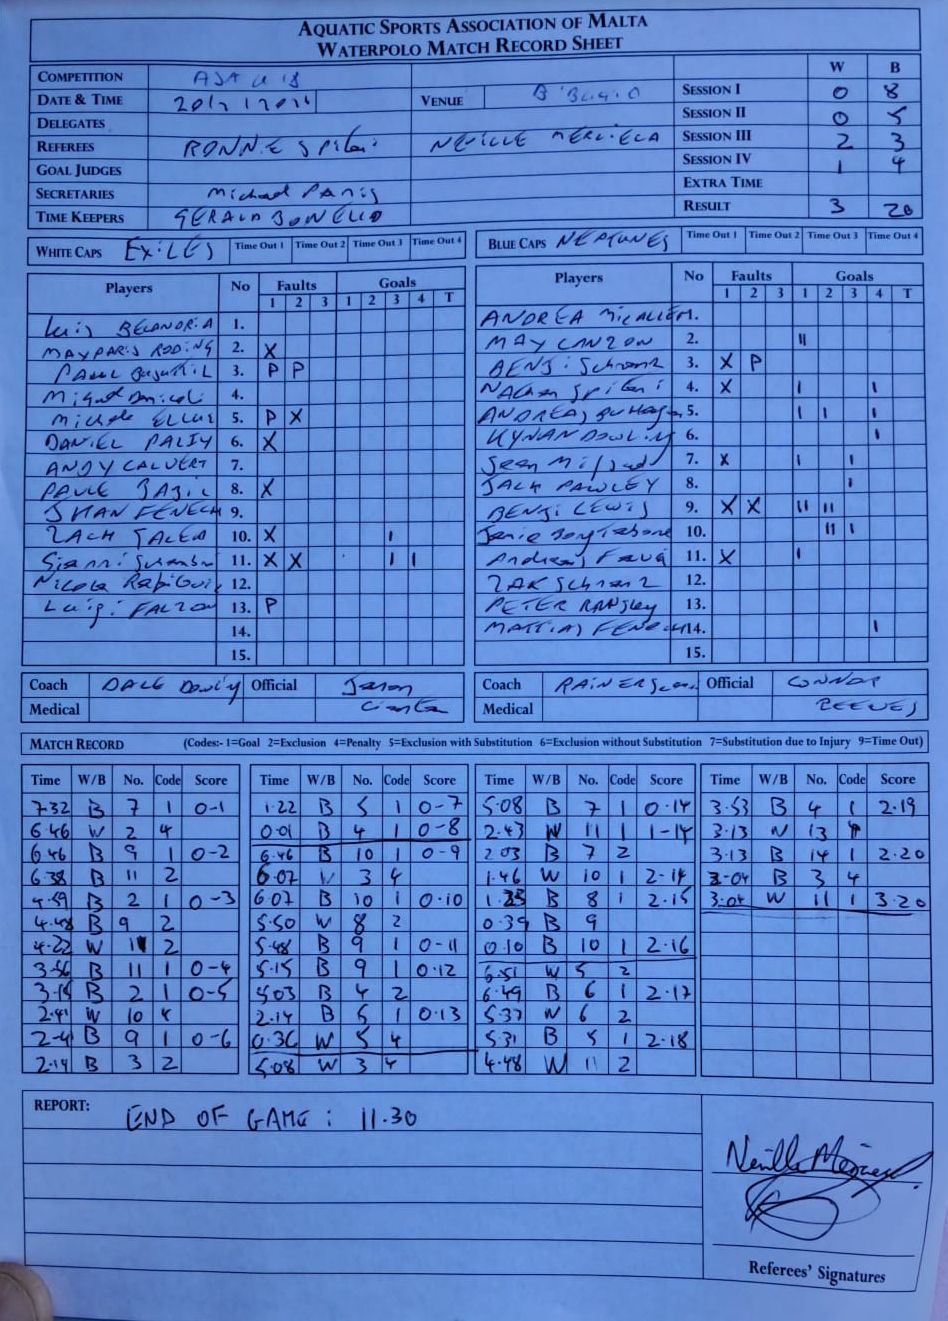 AQUATIC SPORTS ASSOCIATION OF MALTA
WATERPOLO MATCH RECORD SHEET
COMPETITION
DATE & TIME VENUE
DELEGATES
REFEREES RONNIE SPITERI NEVILLE
GOAL JUDGES
SECRETARIES Michael
TIME KEEPERS GERALD BONELLO
W B
SESSION I 0 8
SESSION II 0 5
SESSION III 2 3
SESSION IV 1 4
EXTRA TIME
RESULT 3 20
WHITE CAPS EXILES Time Out 1 Time Out 2 Time Out 3 Time Out 4
Players No Faults Goals
1 2 3 1 2 3 4 T
Luis 1.
2. X
3. P P
4.
Michele 5. P X
DANIEL 6. X
ANDY CALVERT 7.
8. X
FENECH 9.
ZACH 10. X I
11. X X I I
Nicola 12.
Luigi FALZON 13. P
14.
15.
Coach DALE Official Jason
Medical
BLUE CAPS NEPTUNES Time Out 1 Time Out 2 Time Out 3 Time Out 4
Players No Faults Goals
1 2 3 1 2 3 4 T
ANDREA MICALLEF 1.
2. II
BENJI Schranz 3. X P
4. X I I
ANDREAS 5. I I I
KYNAN DOWLING 6. I
Sean 7. X I I
JACK PAWLEY 8. I
BENJI LEWIS 9. X X II II
10. II I
11. X I
ZAK Schranz 12.
PETER RANSLEY 13.
MATTIAS FENECH 14. I
15.
Coach RAINER Official CONNOR
Medical REEVES
MATCH RECORD (Codes:- 1=Goal 2=Exclusion 4=Penalty 5=Exclusion with Substitution 6=Exclusion without Substitution 7=Substitution due to Injury 9=Time Out)
Time W/B No. Code Score
7.32 B 7 1 0-1
6.46 W 2 4
6.46 B 9 1 0-2
6.38 B 11 2
4.59 B 2 1 0-3
4.48 B 9 2
4.22 W 11 2
3.56 B 11 1 0-4
B 2 1 0-5
2.41 W 10 4
2-41 B 9 1 0-6
2.14 B 3 2
Time W/B No. Code Score
1.22 B 5 1 0-7
0.01 B 4 1 0-8
6.46 B 10 1 0-9
6.07 W 3 4
6.07 B 10 1 0.10
5.50 W 8 2
5.48 B 9 1 0-11
5.15 B 9 1 0.12
5.03 B 4 2
2.14 B 5 1 0.13
0.36 W 5 4
5.08 W 3 4
Time W/B No. Code Score
5.08 B 7 1 0.14
2.43 W 11 1 1-14
2.03 B 7 2
1.46 W 10 1 2-14
B 8 1 2.15
0.39 B 9
0.10 B 10 1 2.16
6.51 W 5 2
6.49 B 6 1 2.17
5.37 W 6 2
5.31 B 5 1 2.18
4.48 W 11 2
Time W/B No. Code Score
3.53 B 4 1 2.19
3.13 W 13 4
3.13 B 14 1 2.20
3-04 B 3 4
3.04 W 11 1 3.20
REPORT: END OF GAME: 11.30
Referees' Signatures